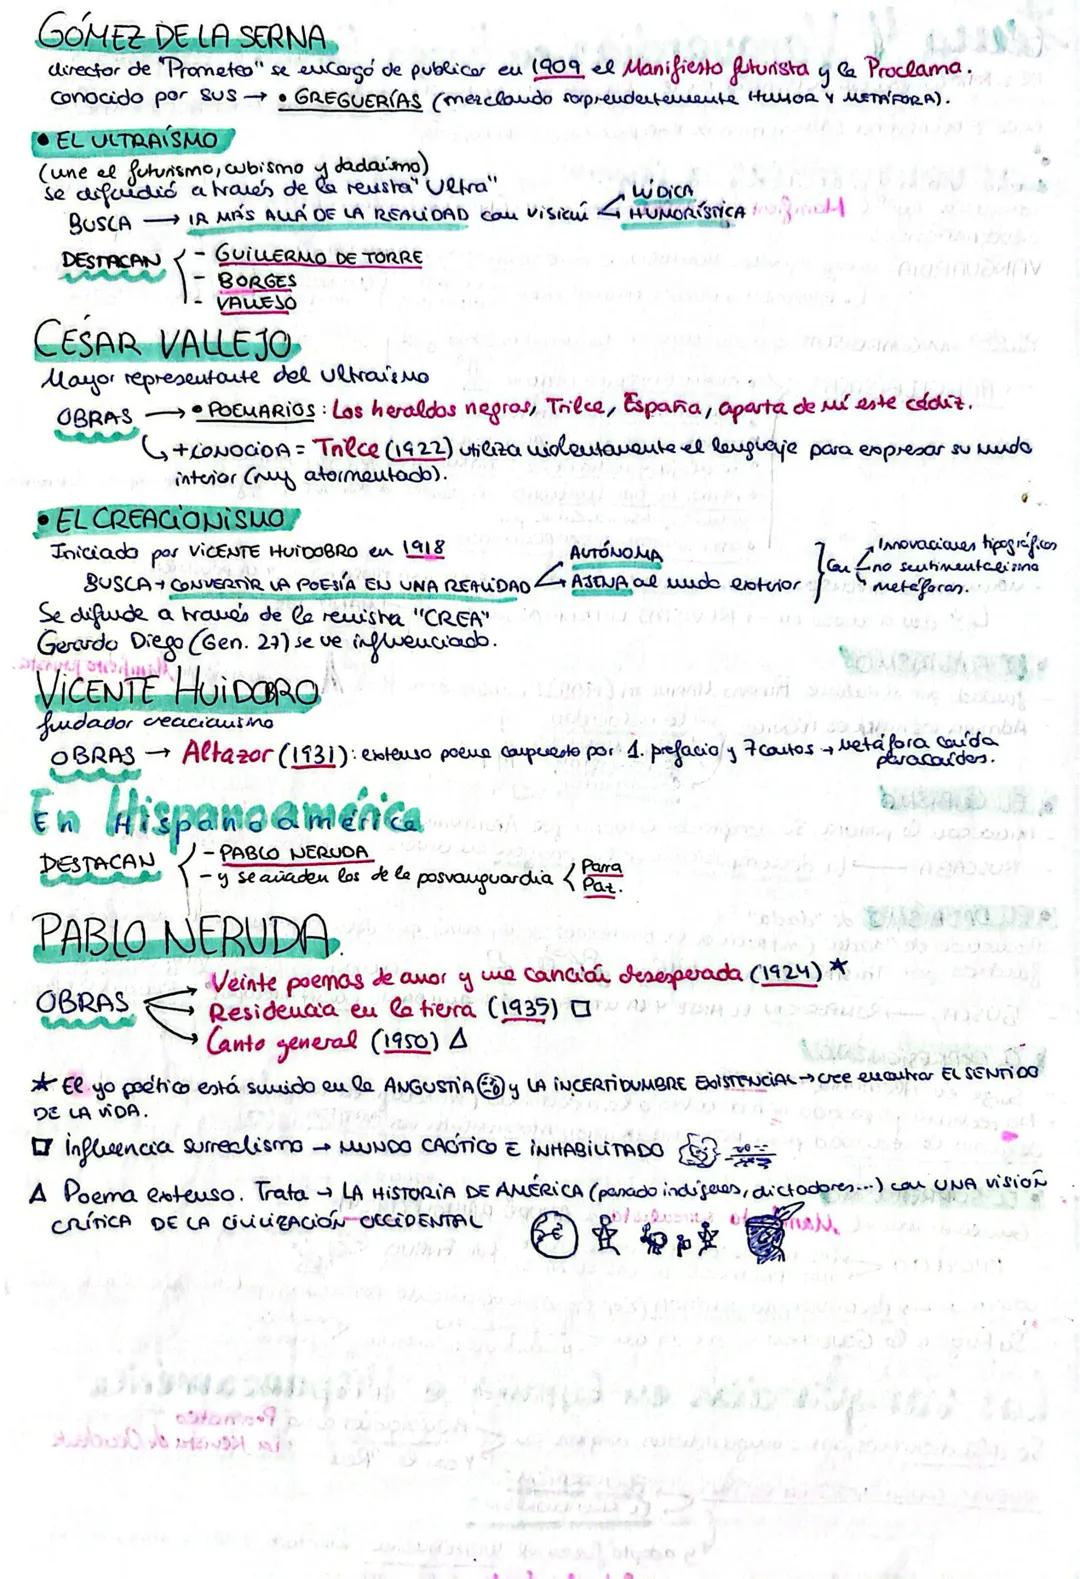 GÓMEZ DE LA SERNA
director de "Prometeo" se encargó de publicar en 1909 el Manifiesto futurista y la Proclama.
conocido por sus → • GREGUERÍAS (mezclando sorprendentemente HUMOR Y METÁFORA).
• EL ULTRAÍSMO
(une el futurismo, cubismo y dadaísmo)
se difundió a través de la revista "Ultra"
BUSCA → IR MÁS ALLÁ DE LA REALIDAD con visión
LÚDICA
HUMORÍSTICA
DESTACAN
- GUILLERMO DE TORRE
- BORGES
- VALLEJO
CÉSAR VALLEJO
Mayor representante del ultraísmo
OBRAS → • POEMARIOS: Los heraldos negros, Trilce, España, aparta de mí este cádiz.
+ CONOCIDA = Trilce (1922) utiliza violentamente el lenguaje para expresar su mundo
interior (muy atormentado).
• EL CREACIONISMO
Iniciado por VICENTE HUIDOBRO en 1918
BUSCA → CONVERTIR LA POESÍA EN UNA REALIDAD
AUTÓNOMA
AJENA al mundo exterior
Con
Innovaciones tipográficas
no sentimentalismo
metáforas.
Se difunde a través de la revista "CREA"
Gerardo Diego (Gen. 27) se ve influenciado.
VICENTE HUIDOBRO
fundador creacionismo
OBRAS → Altazor (1931): extenso poema compuesto por 1 prefacio y 7 cantos → metáfora caída
paracaídas.
En Hispanoamérica
DESTACAN
- PABLO NERUDA
- y se añaden los de la posvanguardia
Parra
Paz.
PABLO NERUDA.
OBRAS
Veinte poemas de amor y una canción desesperada (1924) ★
Residencia en la tierra (1935) □
Canto general (1950) Δ
★ El yo poético está sumido en la ANGUSTIA y LA INCERTIDUMBRE EXISTENCIAL → cree encontrar EL SENTIDO
DE LA VIDA.
□ influencia surrealismo → MUNDO CAÓTICO E INHABILITADO
Δ Poema extenso. Trata → LA HISTORIA DE AMÉRICA (pasado indígenas, dictadores...) con UNA VISIÓN
CRÍTICA DE LA CIVILIZACIÓN OCCIDENTAL